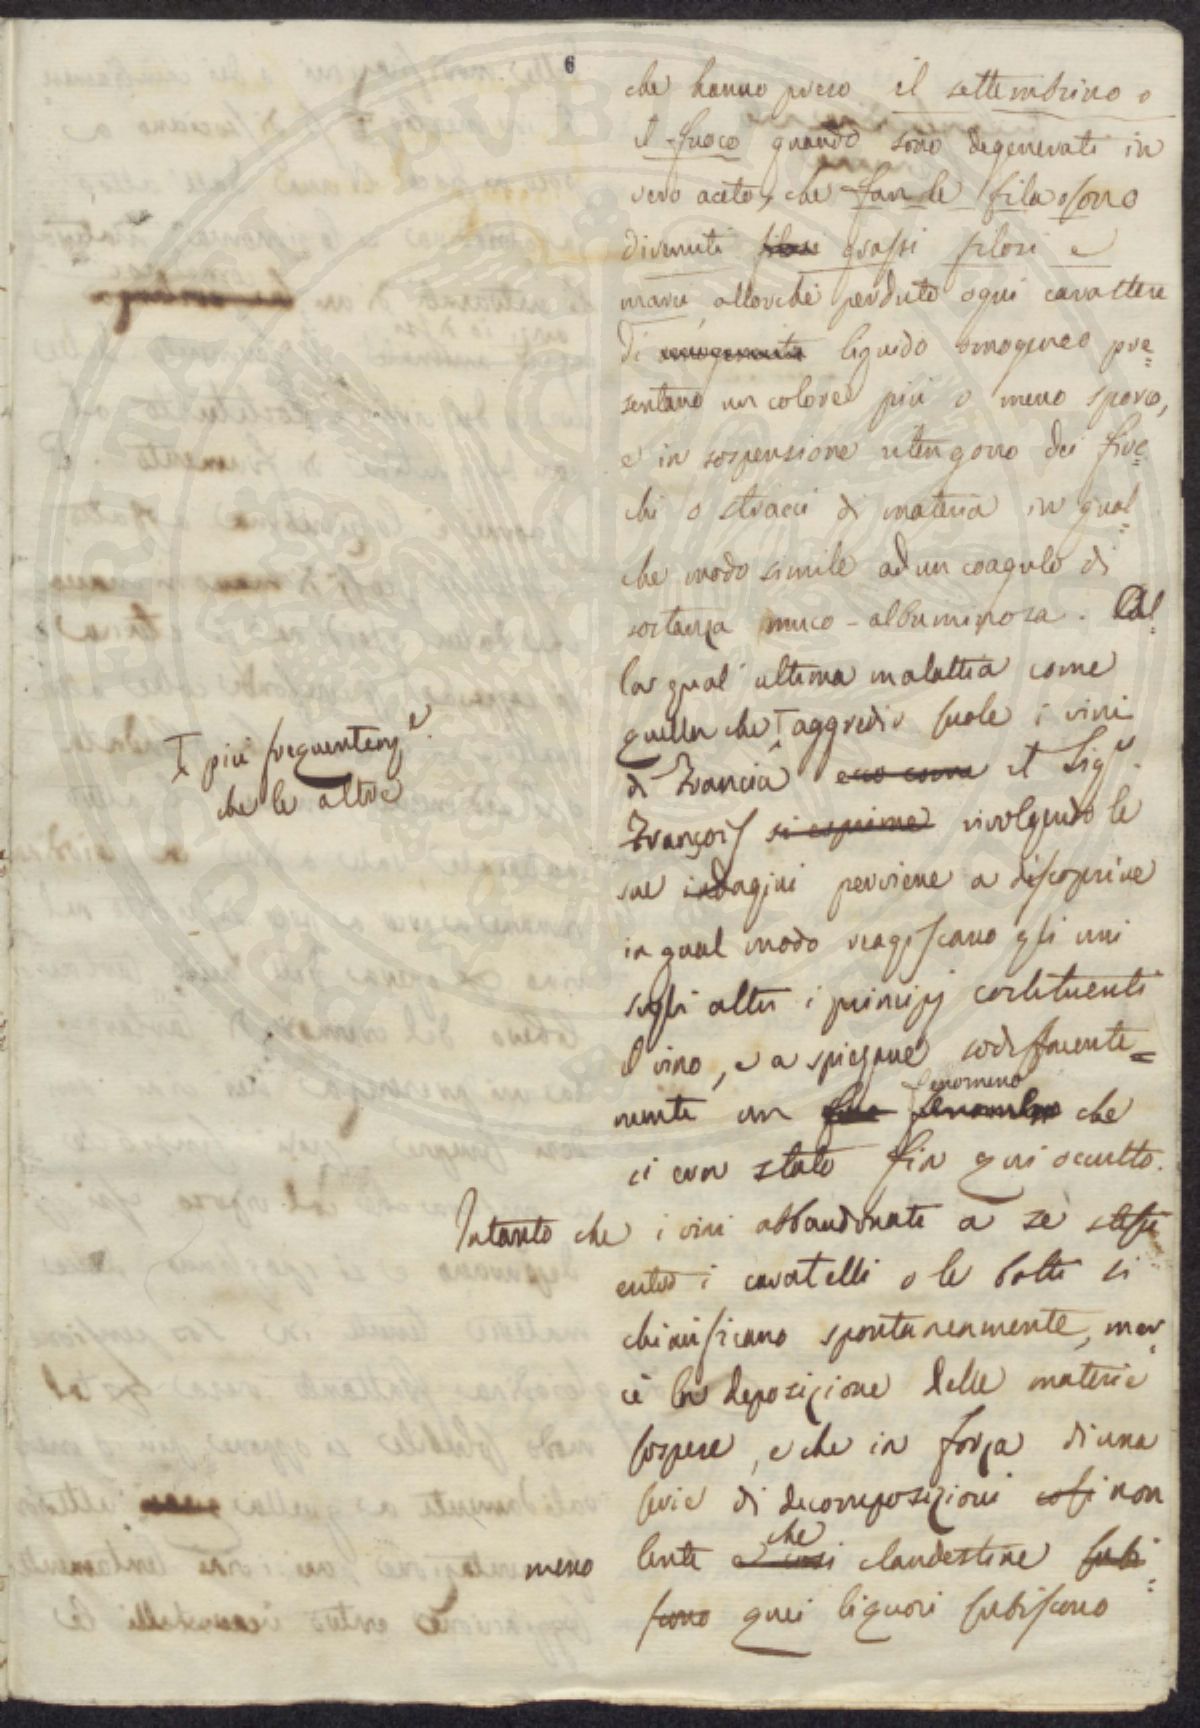 6
che hanno preso il settembrino o
il fuoco quando sono degenerati in
vero aceto, che fan le fila o sono
divenuti filosi grassi filosi e
marci allorchè perduto ogni carattere
di liquido omogeneo pre=
sentano un colore più o meno sporco,
e in sospensione ritengono dei fioc=
chi o stracci di materia in qual=
che modo simile ad un coagulo di
sostanza muco-albuminosa. Al=
la qual ultima malattia come
quella che T aggredir suole i vini
T più frequentem.e
che le altre
di Francia ecco come il Sig.r
François si esprime rivolgendo le
sue indagini perviene a discoprire
in qual modo reagiscano gli uni
sugli altri i principj costituenti
il vino, e a spiegare sodisfacente=
mente un fenomeno che
ci era stato fin qui occulto.
Intanto che i vini abbandonati a sè stessi
entro i caratelli o le botti si
chiarificano spontaneamente, mer=
cè la deposizione delle materie
sospese, e che in forza di una
serie di decomposizioni così non
meno lente che clandestine subi=
scono quei liquori subiscono